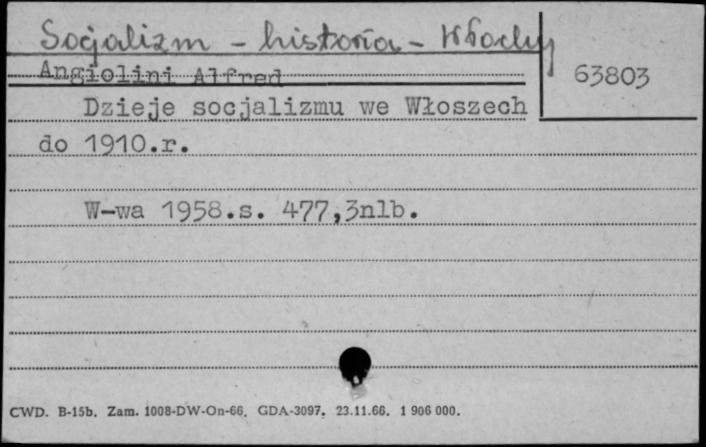 Socjalizm - historia - Włochy
Angiolini Alfred
63803
Dzieje socjalizmu we Włoszech
do 1910.r.
W-wa 1958.s. 477,3nlb.
CWD. B-15b. Zam. 1008-DW-On-66. GDA-3097. 23.11.66. 1 906 000.